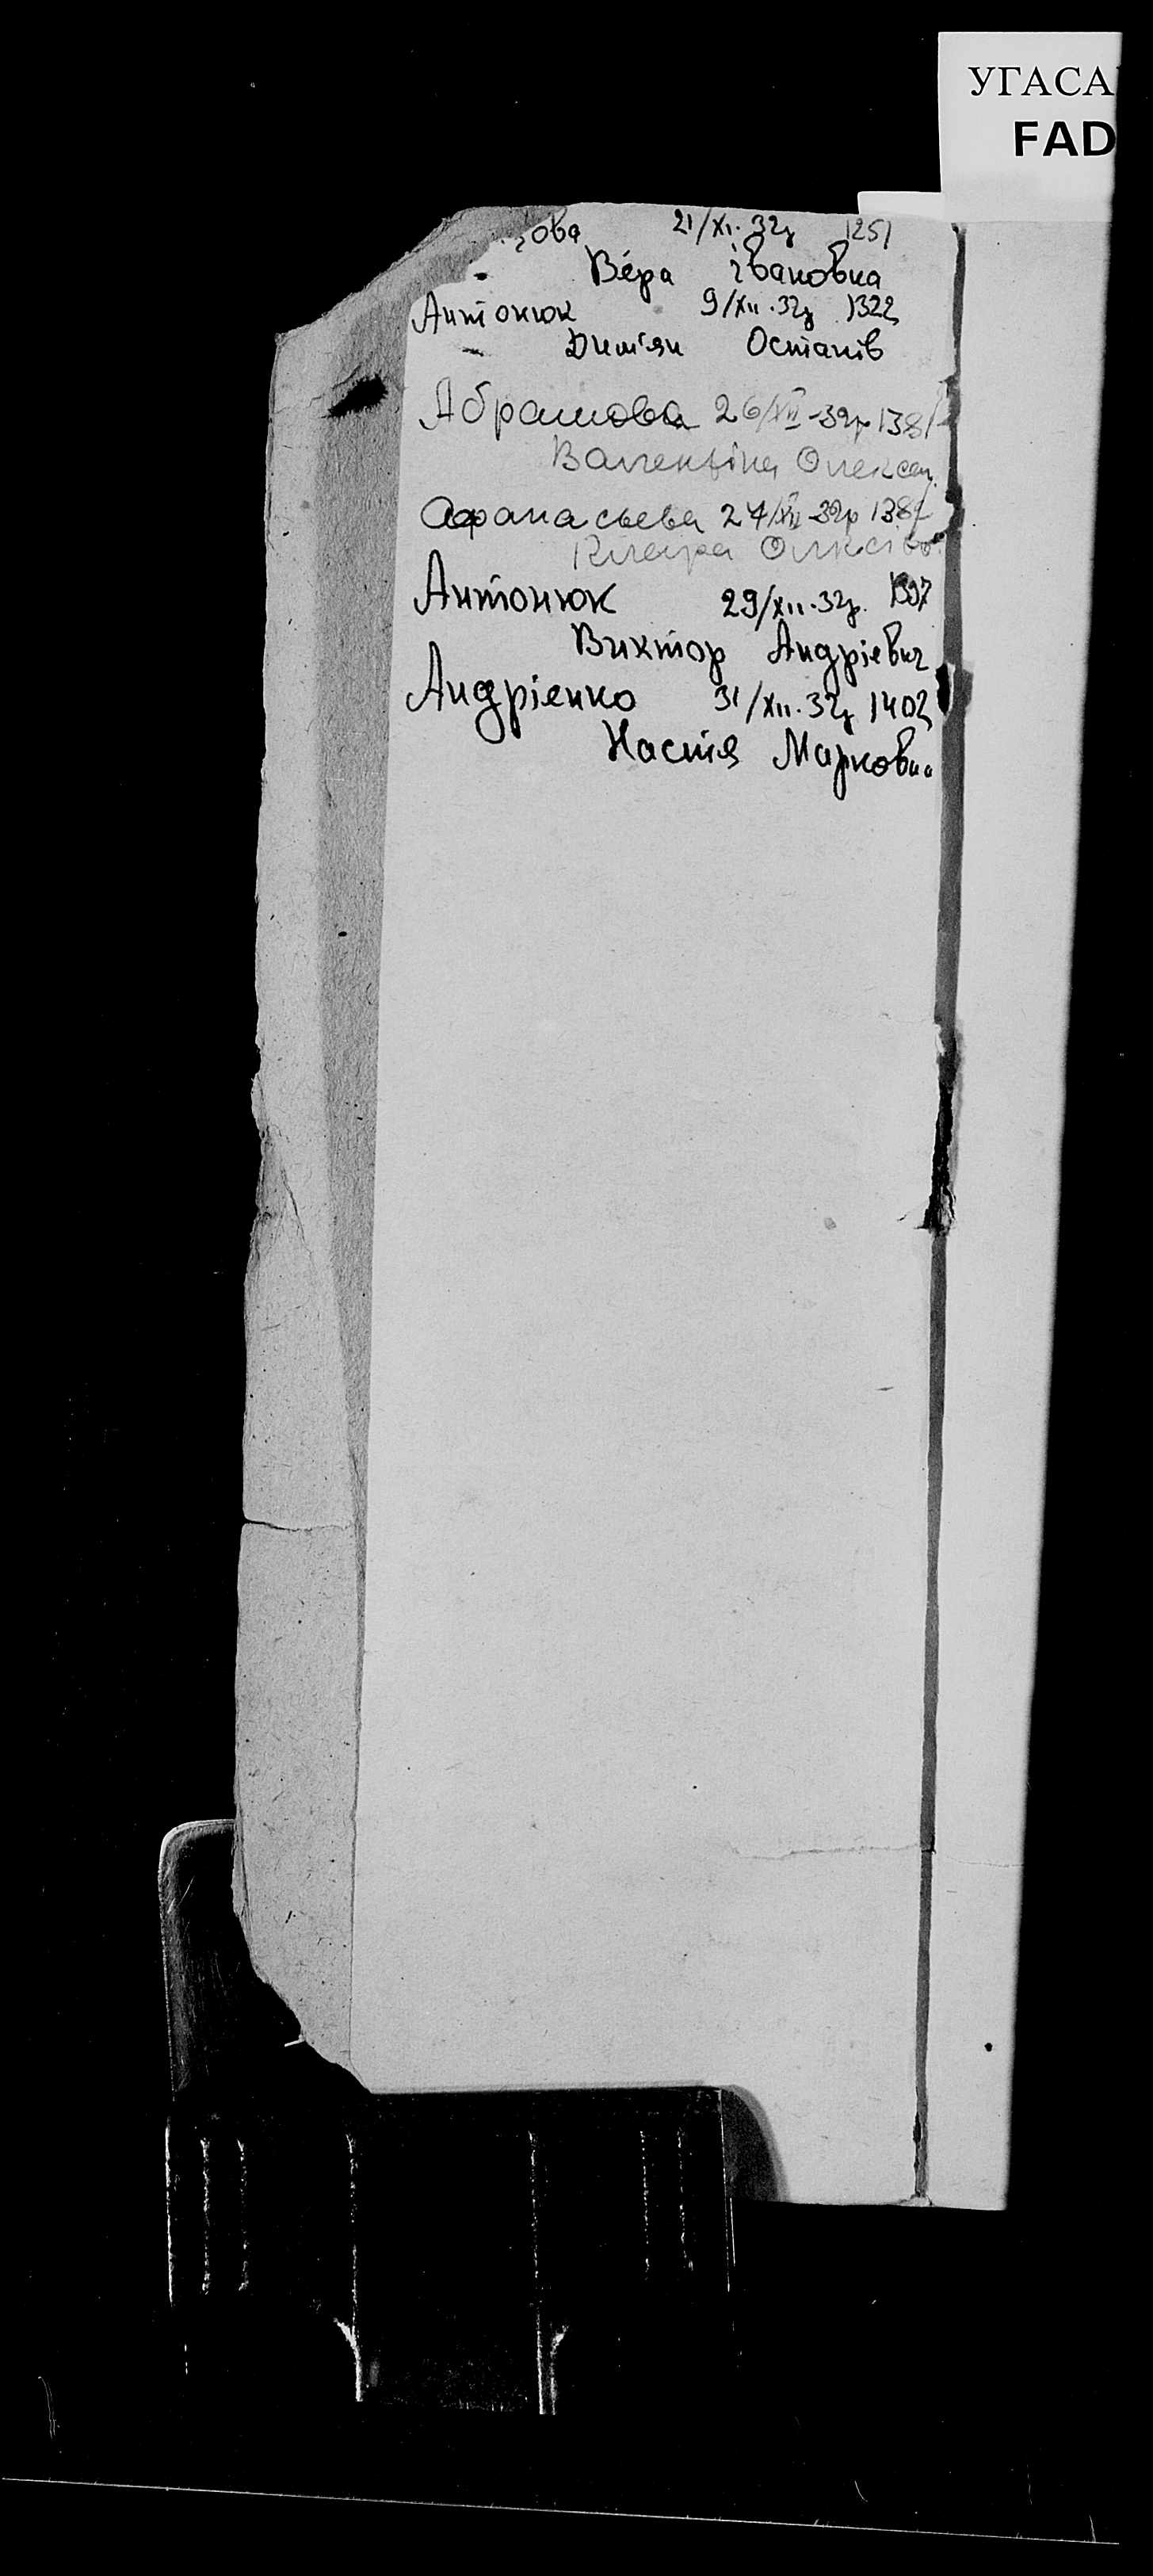 УГАСА
FAD
ова 21/XI.32р 1251
Вéра Івановна
Антонюк 9/XII.32р 1322
Остапів
Абрамова 26/XII-32р 138
Валентіна Олексан.
Афанасьева 27/XII-32р 138
Клара
Антонюк 29/XII.32р. 1397
Виктор Андріевич
Андріенко 31/XII.32р 1402
Настія Марковна